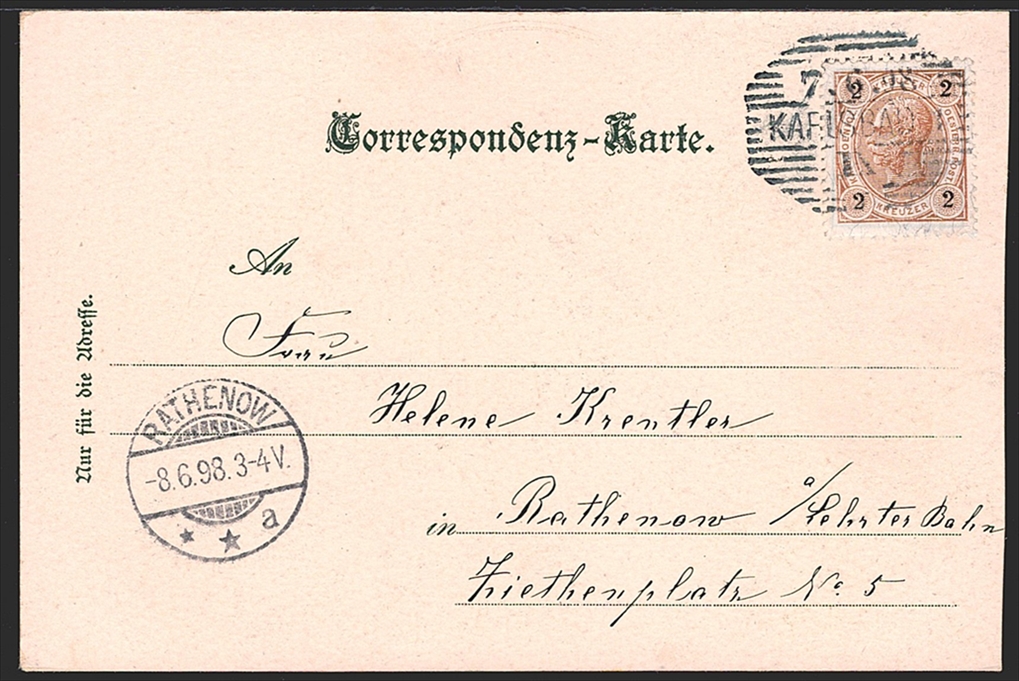 Correspondenz-Karte.
2 2
KREUZER
2 2
An
Frau
Helene Krentler
in Rathenow a/Lehrter Bahn
Ziethenplatz No. 5
Nur für die Adresse.
RATHENOW
-8.6.98.3-4V.
a